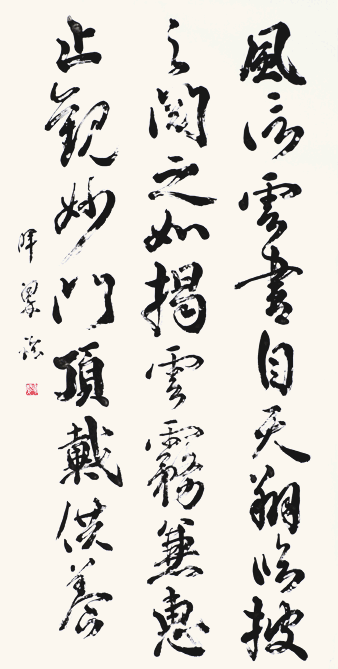 風信雲書自天翔臨披
之閲之如揭雲霧兼惠
止觀妙門頂戴供養